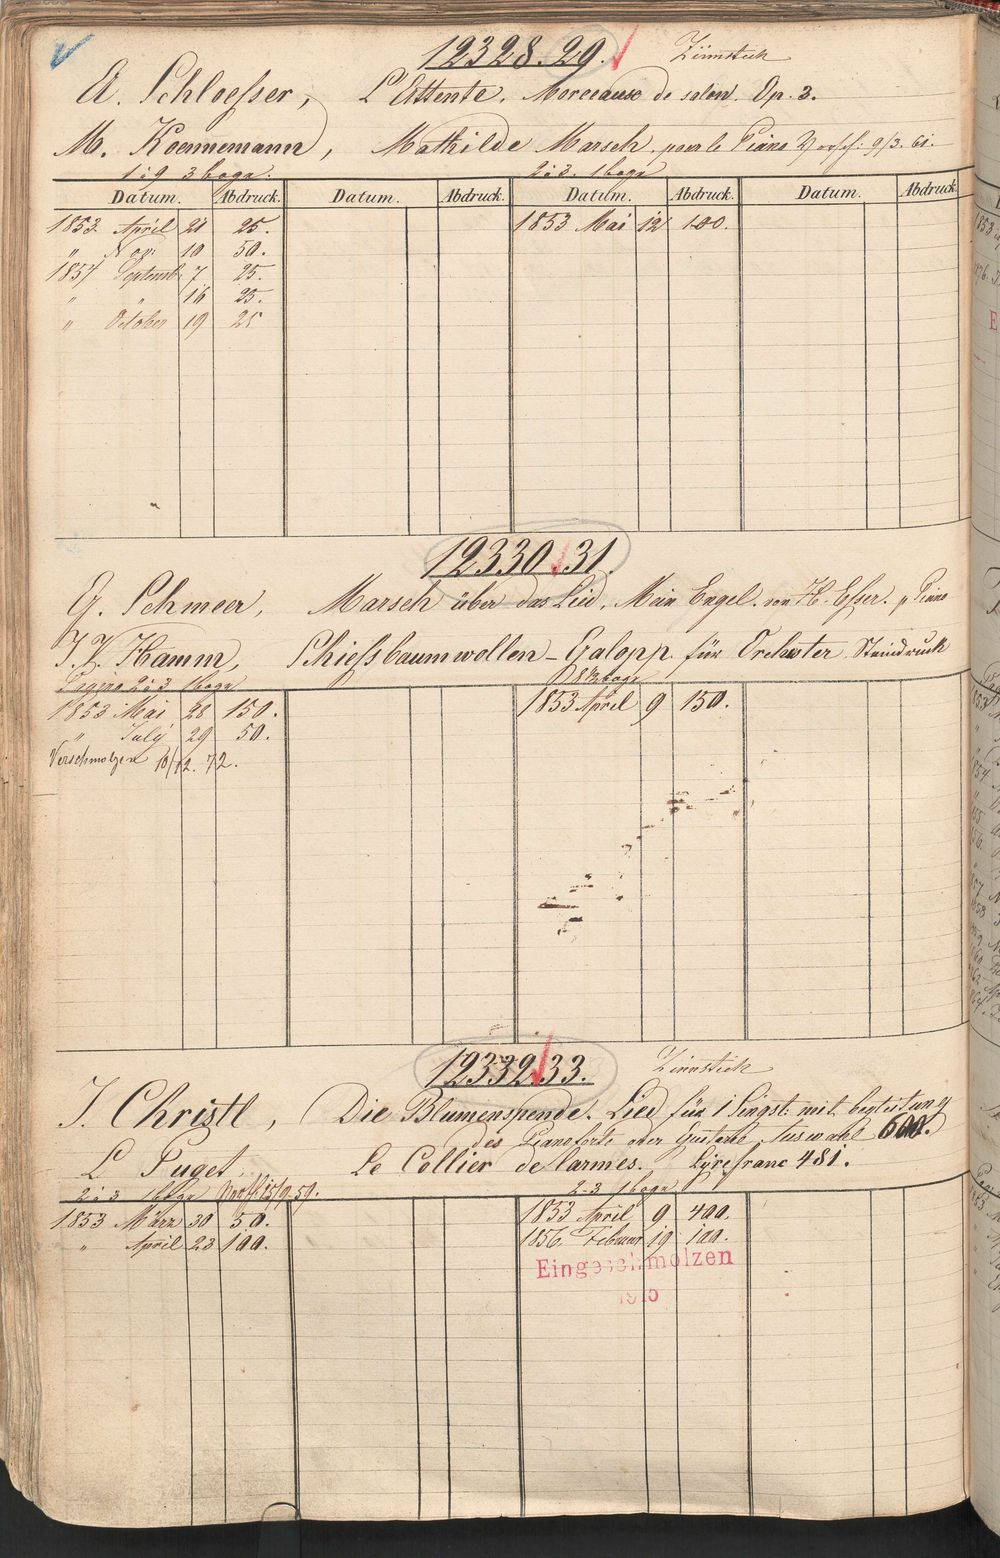 12328.29. Zinnstich
A. Schloesser, L'Attente. Morceause de salon. Op. 3.
M. Koennemann, Mathilde Marsch pour le Piano 9/3. 61.
1 à 9 3 boga. 2 à 3. 1 boga
Datum. Abdruck. Datum. Abdruck. Datum. Abdruck. Datum. Abdruck.
1853 April 21 25. 1853 Mai 12 100.
" Nov: 10 50.
1854 Septemb. 7 25.
" " 16 25.
" October 19 25
12330.31.
G. Schmeer, Marsch über das Lied, Mein Engel. von H. Esser. p Piano
J. V. Hamm, Schiessbaumwollen-Galopp für Orchester Steindruck
Pagina 2 à 3 1 boga 8½ boga
1853 Mai 28 150. 1853 April 9 150.
" July 29 50.
Verschmolzen 10/12. 72.
12332.33. Zinnstich
J. Christl, Die Blumenspende. Lied für 1 Singst. mit begleitung
des Pianoforte oder Guitarre Auswahl 600.
L Puget Le Collier de larmes. Lyre franc 481.
2 à 3 1 boga 15/9. 59. 2-3 1 boga
1853 März 30 50. 1853 April 9 400.
" April 23 100. 1856. Februar 19 100.
Eingeschmolzen
1915